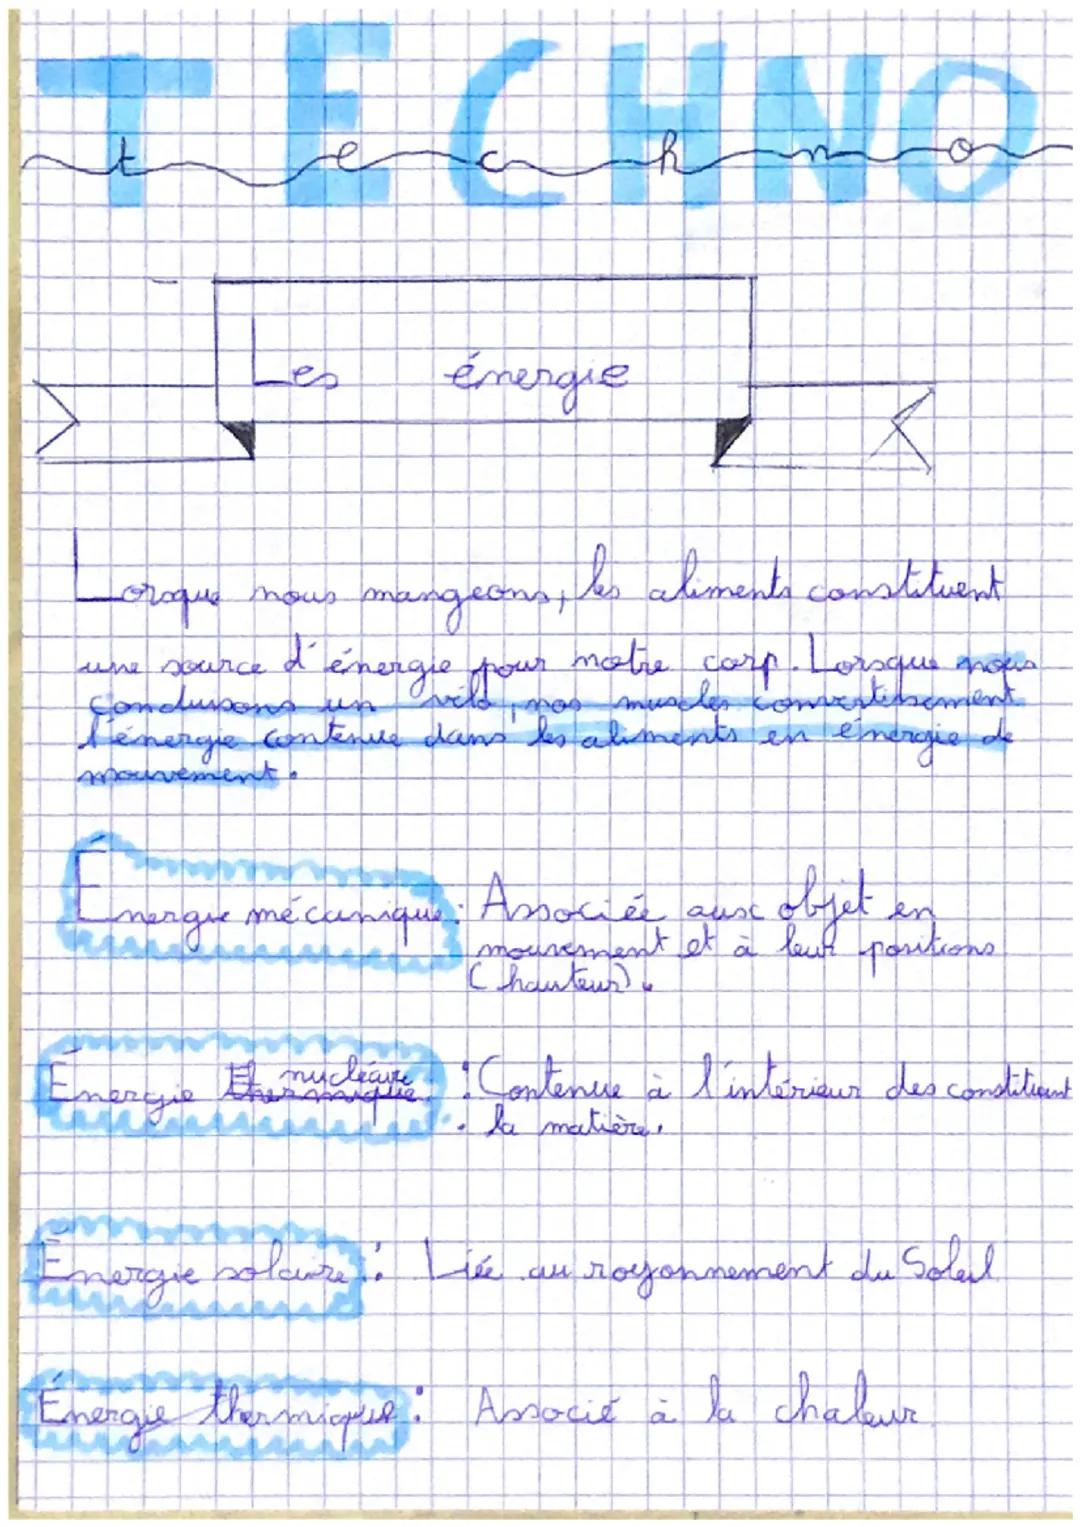 TECHNO
techno
Les énergie
Lorsque nous mangeons, les aliments constituent
une source d'énergie pour notre corp. Lorsque nous
conduisons un vélo, nos muscles convertissement
l'énergie contenue dans les aliments en énergie de
mouvement.
Énergie mécanique : Associée aux objet en
mouvement et à leur positions
(hauteur).
nucléaire
Énergie thermique : Contenue à l'intérieur des constituent
la matière.
Énergie solaire : Liée au rayonnement du Soleil
Énergie thermique : Associé à la chaleur